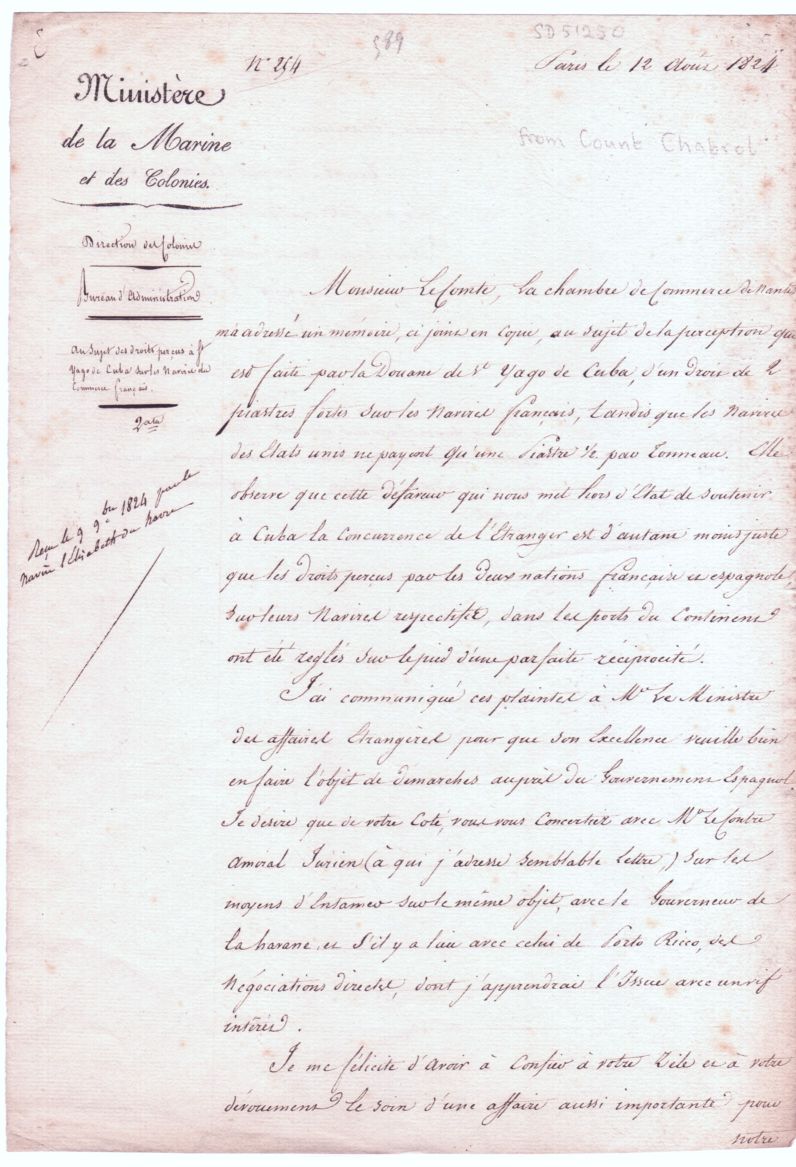 589
SD51230
N° 254
Paris le 12 Août 1824
Ministère
de la Marine
et des Colonies.
from Count Chabrol
Direction des Colonies
Bureau d'Administration
Au sujet des droits perçus à St
Yago de Cuba sur les Navires du
Commerce français.
2ata
Reçu le 9 9bre 1824 par le
navire l'Elisabeth du havre
Monsieur Le Comte, la chambre de Commerce de Nantes
m'a adressé un mémoire, ci joint en Copie, au sujet de la perception, que
est faite par la Douane de St Yago de Cuba, d'un droit de 2
piastres fortes sur les Navires français, tandis que les Navires
des Etats unis ne payent qu'une Piastre ½ par Tonneau. Elle
observe que cette défaveur qui nous met hors d'Etat de soutenir
à Cuba la Concurrence de l'Etranger est d'autant moins juste
que les droits perçus par les deux nations française et espagnole,
sur leurs Navires respectifs, dans les ports du Continent
ont été réglés sur le pied d'une parfaite réciprocité.
J'ai communiqué ces plaintes à Mr Le Ministre
des affaires Etrangères pour que son Excellence veuille bien
en faire l'objet de démarches auprès du Gouvernement Espagnol.
Je désire que de votre Coté, vous vous Concertiez avec Mr Le Contre
Amiral Jurien (à qui j'adresse semblable Lettre,) sur les
moyens d'Entamer sur le même objet, avec le Gouverneur de
la havane, et s'il y a lieu avec celui de Porto Ricco, des
Négociations directes, dont j'apprendrai l'Issue avec un vif
intérêt.
Je me félicite d'Avoir à Confier à votre Zèle et à votre
dévouement le soin d'une affaire aussi importante pour
notre